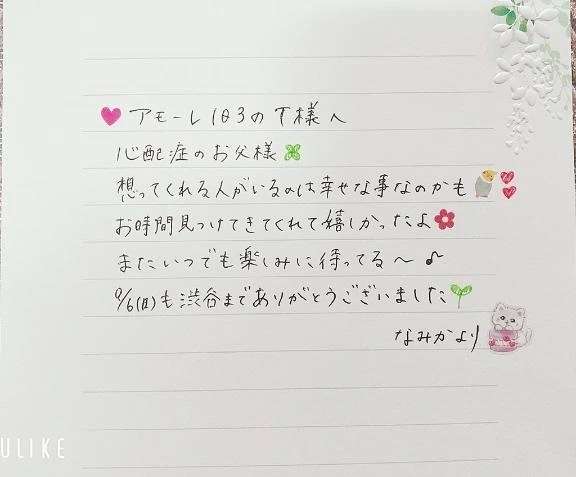 アモーレ103のT様へ
心配症のお父様
想ってくれる人がいるのは幸せな事なのかも
お時間見つけてきてくれて嬉しかったよ
またいつでも楽しみに待ってる〜♪
9/6(日)も渋谷までありがとうございました
なみかより
ULIKE